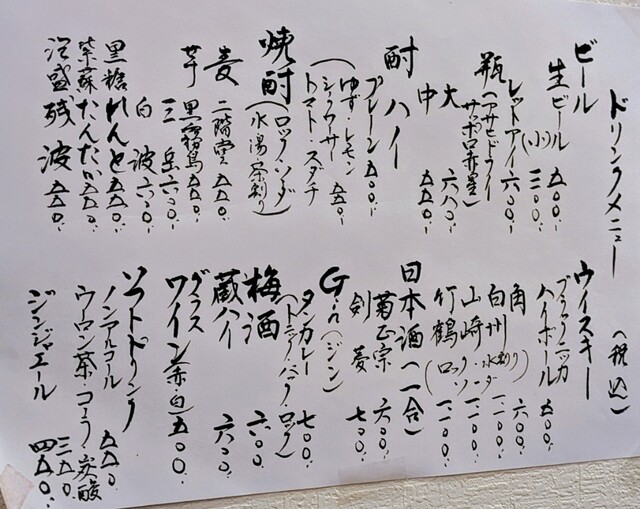 ドリンクメニュー (税込)
ビール
生ビール 五〇〇.-
(小) 三〇〇.-
レットアイ 六〇〇.-
瓶(アサヒドライ
サッポロ赤星)
大 六八〇.-
中 五五〇.-
酎ハイ
プレーン 五〇〇.-
(ゆず・レモン
シークワーサー 五五〇.-
トマト・スダチ
焼酎(ロック・ソーダ
水・湯・茶割り)
麦 二階堂 五五〇.-
芋 黒霧島 五五〇.-
三岳 六〇〇.-
白波 六〇〇.-
黒糖 れんと 五五〇.-
紫蘇 たんたか 五五〇.-
泡盛 残波 五五〇.-
ウイスキー
ブラックニッカ
ハイボール 五〇〇.-
角 六〇〇.-
白州 一二〇〇.-
山崎 一二〇〇.-
竹鶴 一二〇〇.-
(ロック・水割り
ソーダ)
日本酒(一合)
菊正宗 六〇〇.-
剣菱 七〇〇.-
Gin(ジン)
タンカレー 七〇〇.-
(トニック・バック・ロック)
梅酒 六〇〇.-
蔵ハイ 六〇〇.-
グラス
ワイン(赤・白) 五〇〇.-
ソフトドリンク
ノンアルコール 五五〇.-
ウーロン茶・コーラ・炭酸 三五〇.-
ジンジャエール 四五〇.-